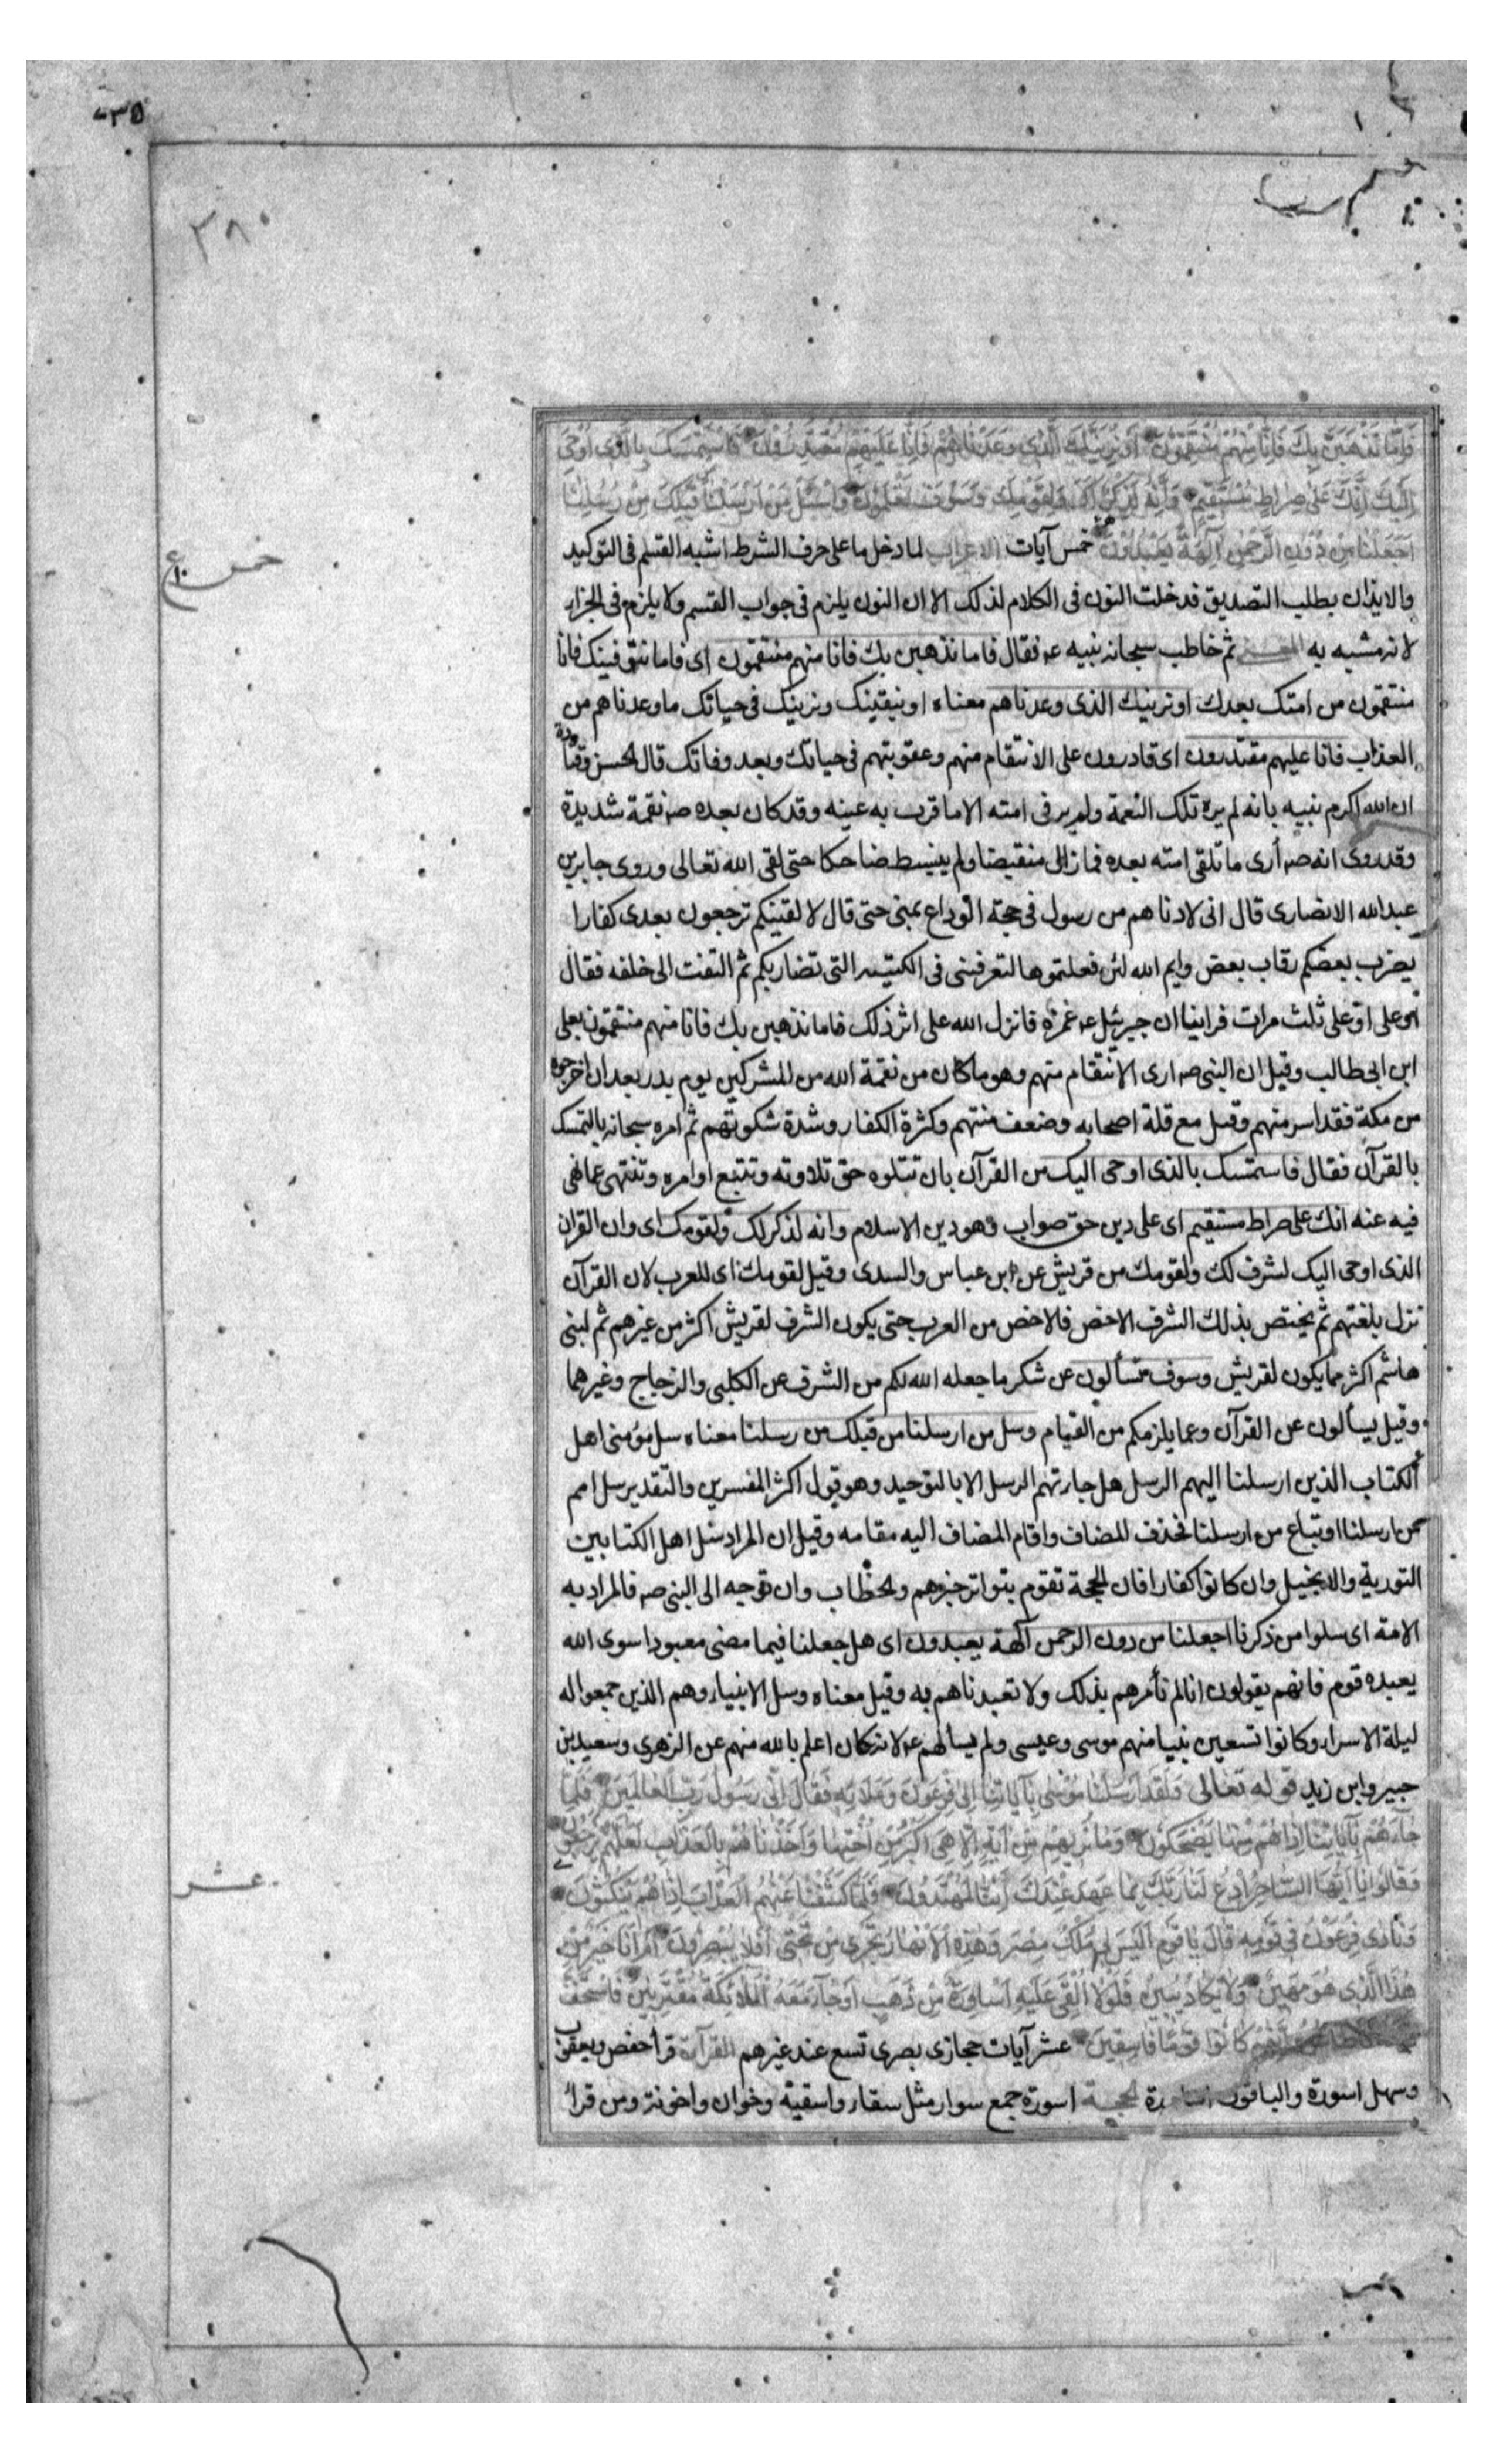 ٣٥
٣٨٠
فَاِمَّا نَذْهَبَنَّ بِكَ فَاِنَّا مِنْهُمْ مُنْتَقِمُونَ اَوْ نُرِيَنَّكَ الَّذِي وَعَدْنَاهُمْ فَاِنَّا عَلَيْهِمْ مُقْتَدِرُونَ فَاسْتَمْسِكْ بِالَّذِي اُوحِيَ
اِلَيْكَ اِنَّكَ عَلَى صِرَاطٍ مُسْتَقِيمٍ وَاِنَّهُ لَذِكْرٌ لَكَ وَلِقَوْمِكَ وَسَوْفَ تُسْئَلُونَ وَاسْئَلْ مَنْ اَرْسَلْنَا قَبْلَكَ مِنْ رُسُلِنَا
اَجَعَلْنَا مِنْ دُونِ الرَّحْمٰنِ اٰلِهَةً يُعْبَدُونَ خمس آيات الاعراب لما دخل ما على حرف الشرط اشبه القسم فى التوكيد
خمس
والايذان بطلب التصديق فدخلت النون فى الكلام لذلك الا ان النون يلزم فى جواب القسم ولا يلزم فى الجزاء
لانه مشبه به المعنى ثم خاطب سبحانه نبيه عه فقال فاما نذهبن بك فانا منهم منتقمون اى فاما نتوفينك فانا
منتقمون من امتك بعدك او نرينك الذى وعدناهم معناه او نبقينك ونرينك فى حياتك ما وعدناهم من
العذاب فانا عليهم مقتدرون اى قادرون على الانتقام منهم وعقوبتهم فى حياتك وبعد وفاتك قال الحسن وقتادة
ان الله اكرم نبيه بانه لم يره تلك النعمة ولم ير فى امته الا ما قرب به عينه وقد كان بعده صه نقمة شديدة
وقد روى انه صه أرى ما تلقى امته بعده فما زال منقبضا ولم ينبسط ضاحكا حتى لقى الله تعالى وروى جابر بن
عبد الله الانصارى قال انى لادناهم من رسول فى حجة الوداع بمنى حتى قال لا لقينكم ترجعون بعدى كفارا
يضرب بعضكم رقاب بعض وايم الله لئن فعلتموها لتعرفننى فى الكتيبه التى تضاربكم ثم التفت الى خلفه فقال
او على او على ثلث مرات فراينا ان جبرئيل عه غمزه فانزل الله على اثر ذلك فاما نذهبن بك فانا منهم منتقمون بعلى
ابن ابى طالب وقيل ان النبى صه ارى الانتقام منهم وهو ما كان من نقمة الله من المشركين يوم بدر بعد ان اخرجوه
من مكة فقد اسر منهم وقتل مع قلة اصحابه وضعف منتهم وكثرة الكفار وشدة شكوتهم ثم امره سبحانه بالتمسك
بالقرآن فقال فاستمسك بالذى اوحى اليك من القرآن بان تتلوه حق تلاوته وتتبع اوامره وتنتهى عما نهى
فيه عنه انك على صراط مستقيم اى على دين حق صواب وهو دين الاسلام وانه لذكر لك ولقومك اى وان القران
الذى اوحى اليك لشرف لك ولقومك من قريش عن ابن عباس والسدى وقيل لقومك اى للعرب لان القرآن
نزل بلغتهم ثم يختص بذلك الشرف الاخص فالاخص من العرب حتى يكون الشرف لقريش اكثر من غيرهم ثم لبنى
هاشم اكثر مما يكون لقريش وسوف تسألون عن شكر ما جعله الله لكم من الشرف عن الكلبى والزجاج وغيرهما
وقيل يسألون عن القرآن وعما يلزمكم من القيام وسل من ارسلنا من قبلك من رسلنا معناه سل مؤمنى اهل
الكتاب الذين ارسلنا اليهم الرسل هل جاءتهم الرسل الا بالتوحيد وهو قول اكثر المفسرين والتقدير سل امم
من ارسلنا او تباع من ارسلنا فحذف المضاف واقام المضاف اليه مقامه وقيل ان المراد سل اهل الكتابين
التورية والانجيل وان كانوا كفارا فان الحجة تقوم بتواتر خبرهم والخطاب وان توجه الى النبى صه فالمراد به
الامة اى سلوا من ذكرنا اجعلنا من دون الرحمن آلهة يعبدون اى هل جعلنا فيما مضى معبودا سوى الله
يعبده قوم فانهم يقولون انا لم نأمرهم بذلك ولا تعبدناهم به وقيل معناه وسل الانبياء وهم الذين جمعوا له
ليلة الاسراء وكانوا تسعين نبيا منهم موسى وعيسى ولم يسألهم عه لانه كان اعلم بالله منهم عن الزهرى وسعيد بن
جبير وابن زيد قوله تعالى وَلَقَدْ اَرْسَلْنَا مُوسٰى بِاٰيَاتِنَا اِلٰى فِرْعَوْنَ وَمَلَائِهِ فَقَالَ اِنِّى رَسُولُ رَبِّ الْعَالَمِينَ فَلَمَّا
جَاءَهُمْ بِاٰيَاتِنَا اِذَا هُمْ مِنْهَا يَضْحَكُونَ وَمَا نُرِيهِمْ مِنْ اٰيَةٍ اِلَّا هِيَ اَكْبَرُ مِنْ اُخْتِهَا وَاَخَذْنَاهُمْ بِالْعَذَابِ لَعَلَّهُمْ يَرْجِعُونَ
وَقَالُوا يَا اَيُّهَا السَّاحِرُ ادْعُ لَنَا رَبَّكَ بِمَا عَهِدَ عِنْدَكَ اِنَّنَا لَمُهْتَدُونَ فَلَمَّا كَشَفْنَا عَنْهُمُ الْعَذَابَ اِذَا هُمْ يَنْكُثُونَ
عشر
وَنَادٰى فِرْعَوْنُ فِي قَوْمِهِ قَالَ يَا قَوْمِ اَلَيْسَ لِي مُلْكُ مِصْرَ وَهٰذِهِ الْاَنْهَارُ تَجْرِي مِنْ تَحْتِي اَفَلَا تُبْصِرُونَ اَمْ اَنَا خَيْرٌ مِنْ
هٰذَا الَّذِي هُوَ مَهِينٌ وَلَا يَكَادُ يُبِينُ فَلَوْلَا اُلْقِيَ عَلَيْهِ اَسَاوِرَةٌ مِنْ ذَهَبٍ اَوْ جَاءَ مَعَهُ الْمَلَائِكَةُ مُقْتَرِنِينَ فَاسْتَخَفَّ
كَانُوا قَوْمًا فَاسِقِينَ عشر آيات حجازى بصرى تسع عند غيرهم القرآءة قرأ حفص ويعقوب
وسهل اسورة والباقون اساورة الحجة اسورة جمع سوار مثل سقاء واسقية وخوان واخونة ومن قرأ